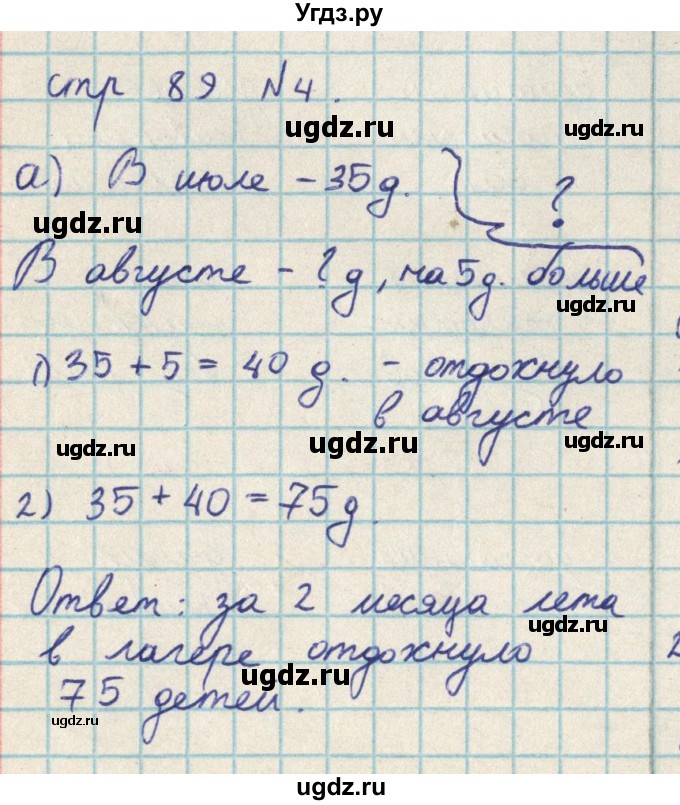 Угдз.ру
стр 89 №4.
ugdz.ru
а) В июле – 35 д.
?
ugdz.ru
ugdz.ru
В августе – ? д, на 5 д. больше
ugdz.ru
1) 35 + 5 = 40 д. – отдохнуло
ugdz.ru
в августе
ugdz.ru
ugdz.ru
ugdz.ru
2) 35 + 40 = 75 д.
Ответ: за 2 месяца лета
ugdz.ru
в лагере отдохнуло
ugdz.ru
75 детей.
ugdz.ru
ugdz.ru